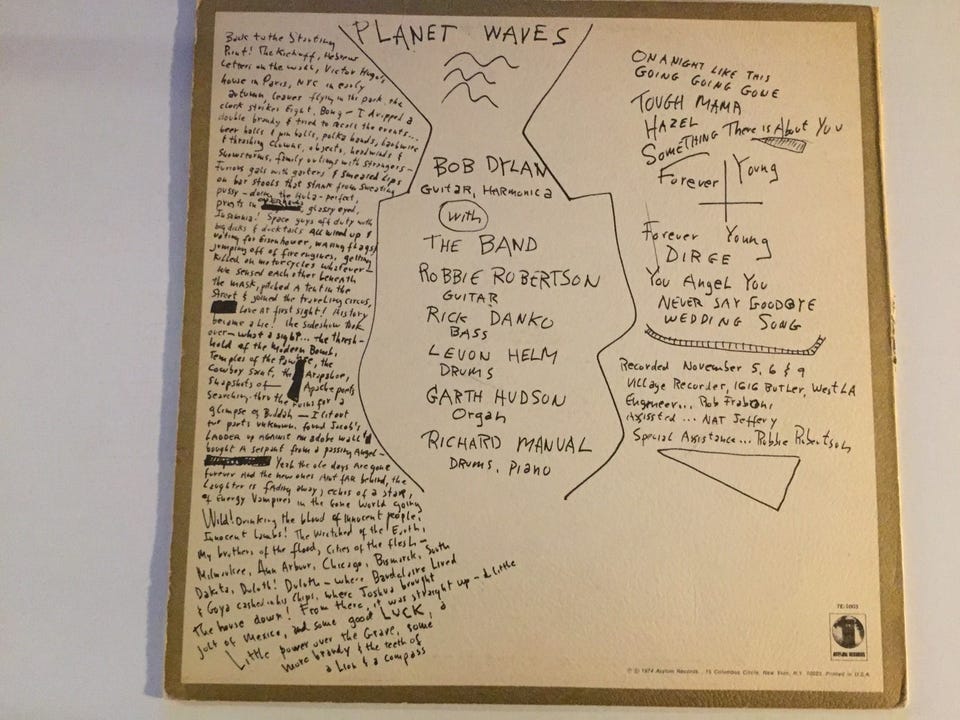 PLANET WAVES
Back to the Starting
Point! The Kickoff, Hebrew
Letters on the wall, Victor Hugo's
house in Paris, NYC in early
autumn leaves flying in the park, the
clock strikes Eight, Bong - I dropped a
double brandy & tried to recall the events...
beer halls & pin balls, polka bands, barbwire
& thrashing clowns, objects, headwinds &
Snowstorms, family outings with strangers -
Furious gals with garters & smeared Lips
on bar stools that stank from sweating
pussy - doing the Hula - perfect,
priests in glassy eyed,
Insomnia! Space guys off duty with
big dicks & ducktails All wired up &
voting for Eisenhower, waving flags &
jumping off of fire engines, getting
killed on motorcycles whatever -
We sensed each other beneath
the mask, pitched a tent in the
Street & joined the traveling circus,
Love at first sight! History
became a Lie! the sideshow took
over - what a sight... the thresh-
hold of the Modern Bomb,
Temples of the the
Cowboy Saint, the Arapahoe,
Snapshots of Apache poets
Searching thru the ruins for a
glimpse of Buddah - I lit out
for parts unknown, found Jacob's
Ladder up against an adobe wall &
bought A serpent from a passing Angel -
Yeah the ole days Are gone
forever And the new ones Aint fAR behind, the
Laughter is fAding away, echos of a staR,
of Energy Vampires in the Gone World going
Wild! Drinking the blood of innocent people,
Innocent Lambs! The Wretched of the Earth,
My brothers of the flood, Cities of the flesh -
Milwaukee, Ann Arbor, Chicago, Bismarck, South
Dakota, Duluth! Duluth - where Baudelaire Lived
& Goya cashed in his Chips, where Joshua brought
the house down! From there, it was straight up - a little
jolt of Mexico, and some good LUCK, a
Little power over the Grave, some
more brandy & the teeth of
a Lion & a compass
BOB DYLAN
GUITAR, HARMONICA
with
THE BAND
ROBBIE ROBERTSON
GUITAR
RICK DANKO
BASS
LEVON HELM
DRUMS
GARTH HUDSON
Organ
RICHARD MANUAL
DRUMS, PIANO
ON A NIGHT LIKE THIS
GOING GOING GONE
TOUGH MAMA
HAZEL
SOMETHING There is About YOU
Forever Young
Forever Young
DIRGE
You Angel You
NEVER SAY GOODBYE
WEDDING SONG
Recorded November 5, 6 & 9
Village Recorder, 1616 Butler, West LA
Engineer... Rob Fraboni
Assisted... NAT Jeffery
Special Assistance... Robbie Robertson
7E-1003
ASYLUM RECORDS
℗ © 1974 Asylum Records, 15 Columbus Circle, New York, N.Y. 10023. Printed in U.S.A.